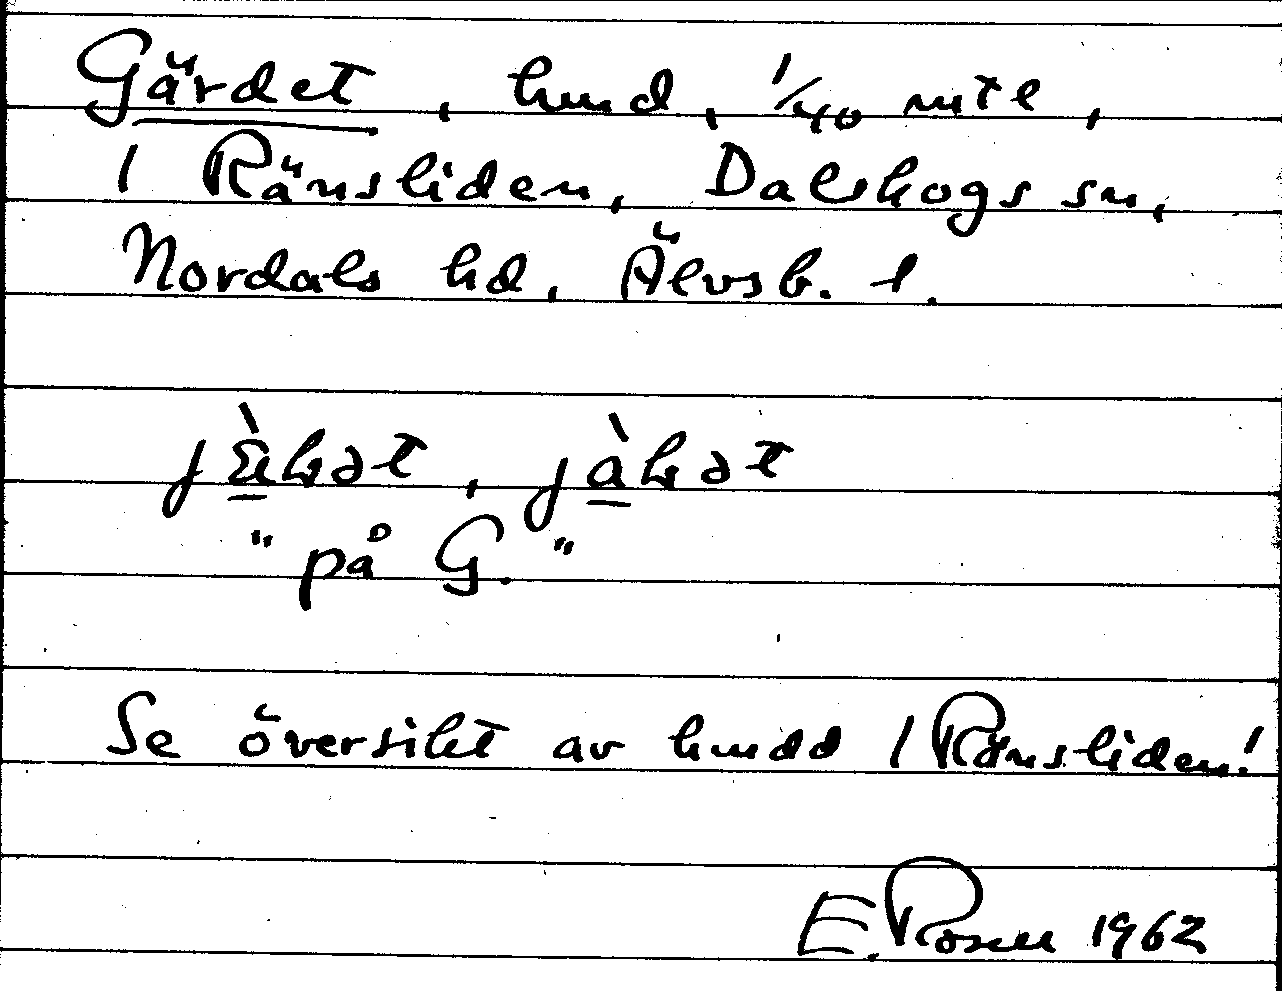 Gärdet, hmd, 1/40 mtl,
1 Ränsliden, Dalskogs sn,
Nordals hd, Älvsb. l.
"på G."
Se översikt av hmdd 1 Ränsliden!
E. Rosell 1962